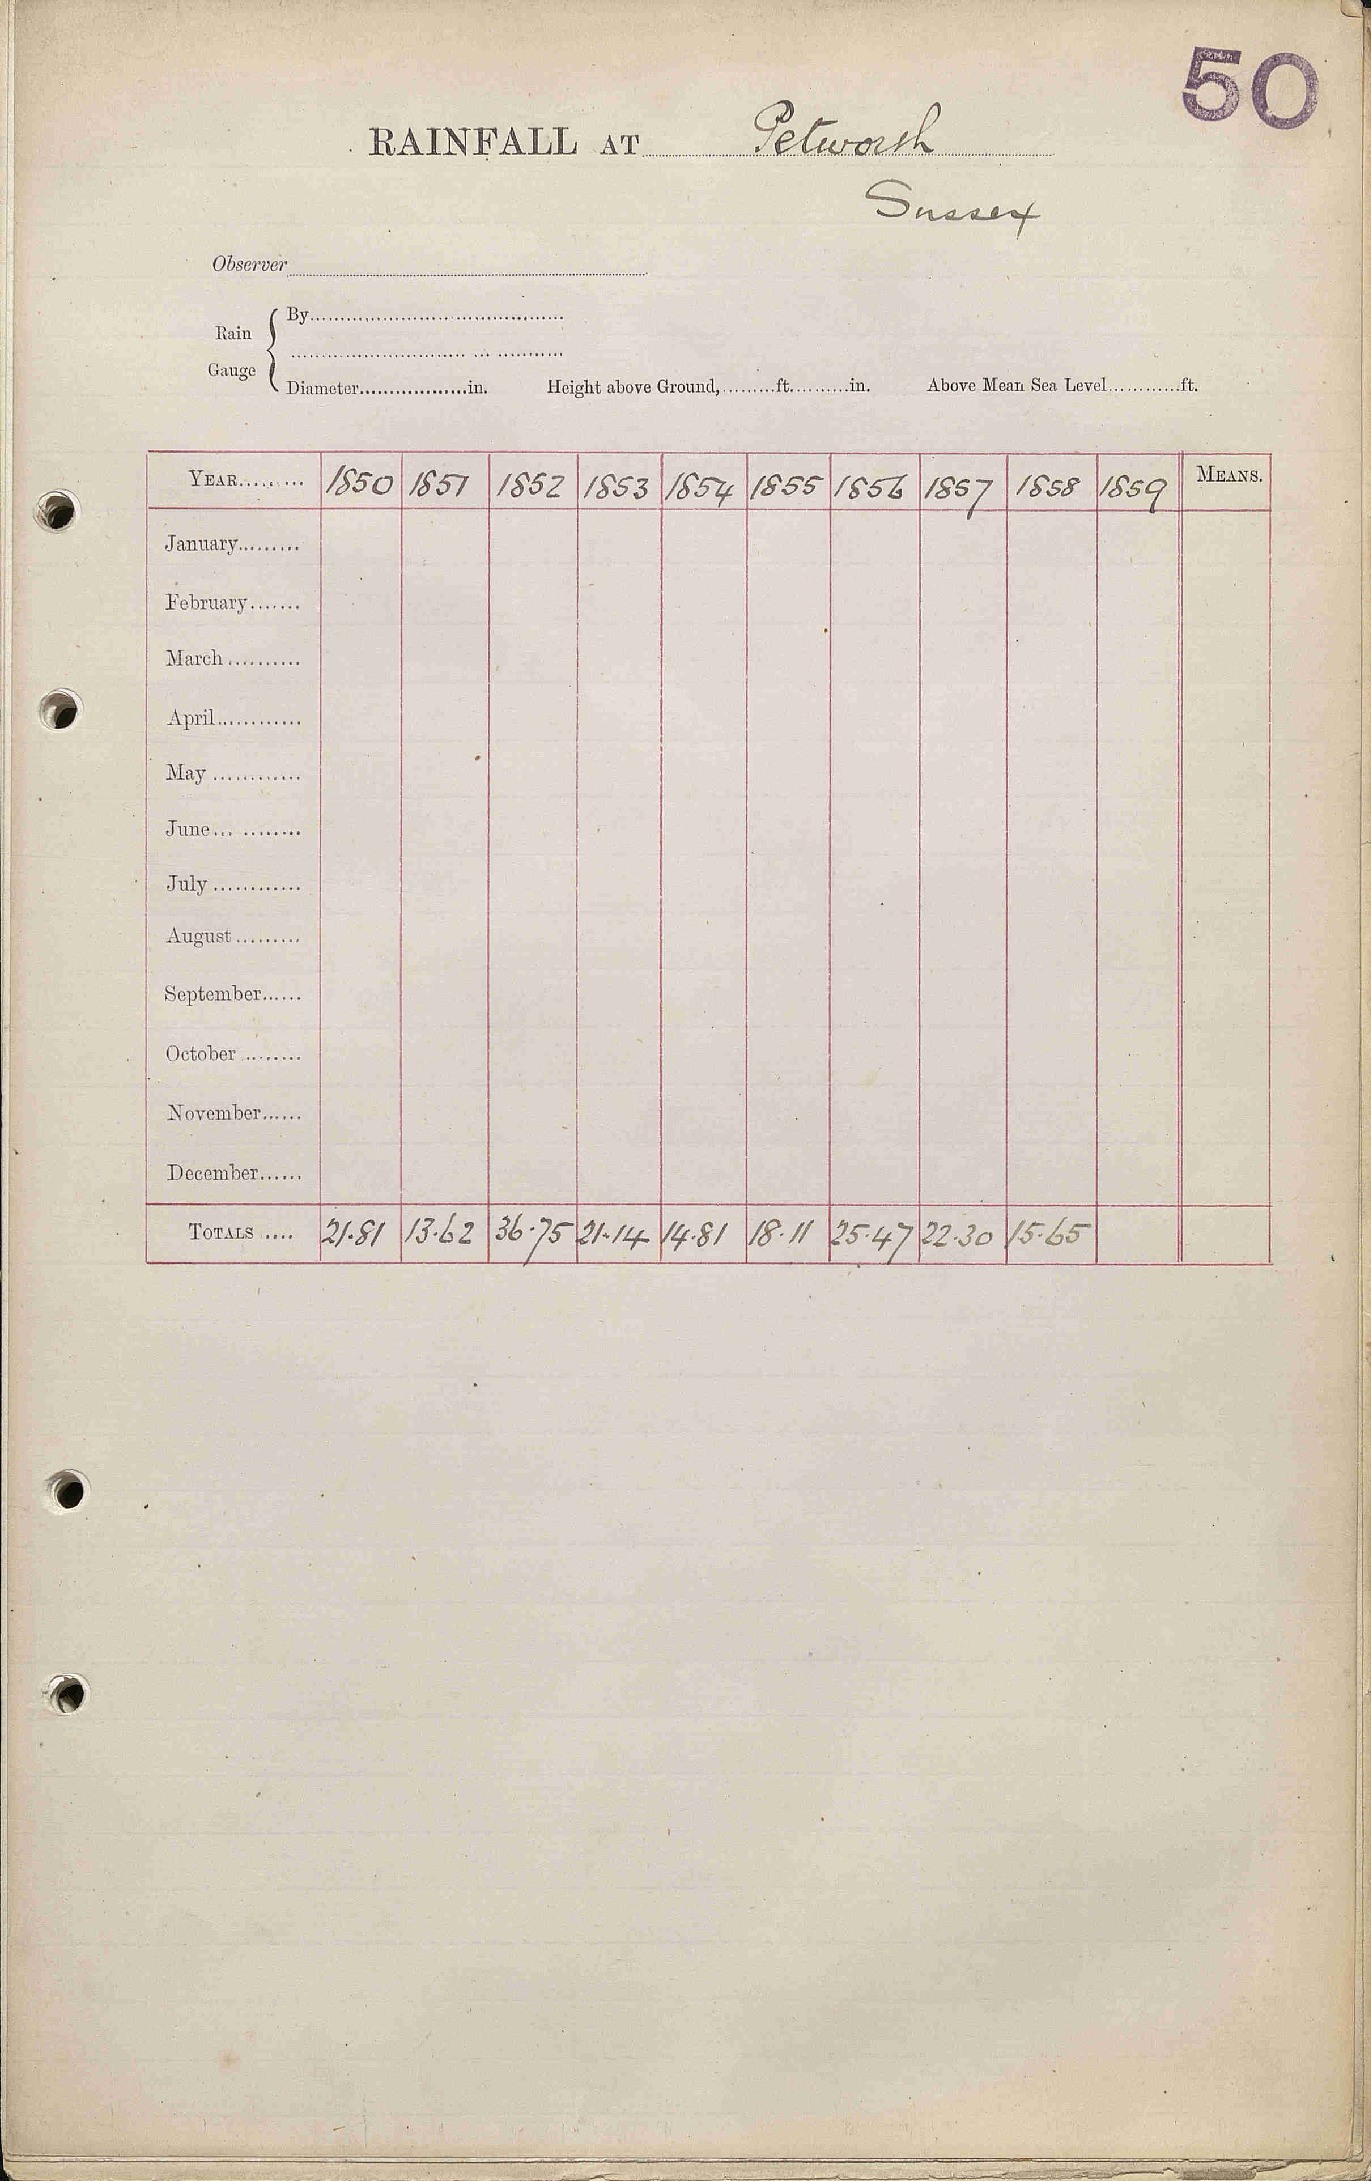 50
RAINFALL AT Petworth
Sussex
Observer
Rain Gauge
By
Diameter..................in. Height above Ground,.........ft..........in. Above Mean Sea Level............ft.
YEAR......... 1850 1851 1852 1853 1854 1855 1856 1857 1858 1859 MEANS.
January.........
February.......
March..........
April............
May............
June... ........
July............
August.........
September......
October ........
November......
December......
TOTALS .... 21.81 13.62 36.75 21.14 14.81 18.11 25.47 22.30 15.65